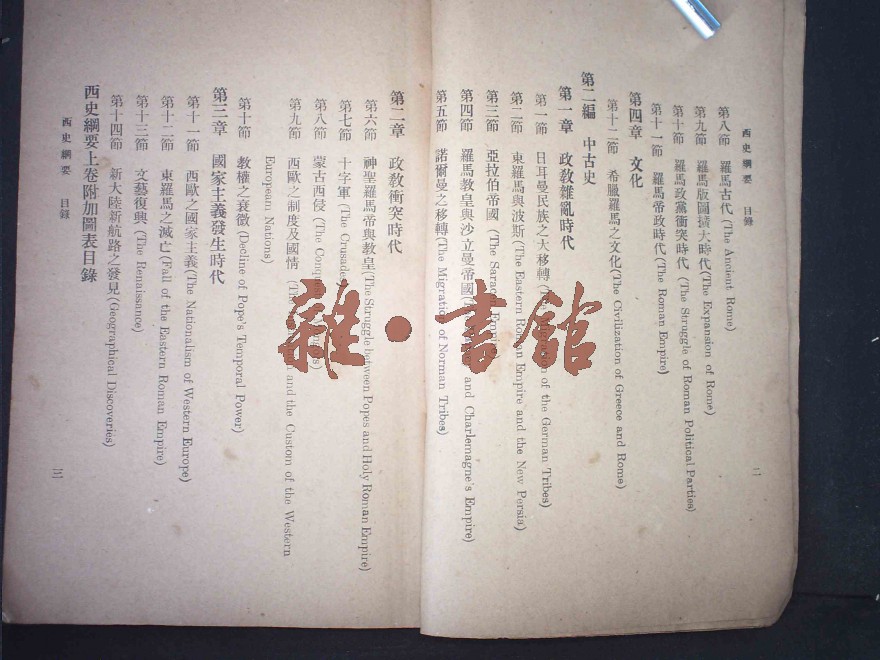 西史綱要 目錄
二
第八節 羅馬古代 (The Ancient Rome)
第九節 羅馬版圖擴大時代 (The Expansion of Rome)
第十節 羅馬政黨衝突時代 (The Struggle of Roman Political Parties)
第十一節 羅馬帝政時代 (The Roman Empire)
第四章 文化
第十二節 希臘羅馬之文化 (The Civilization of Greece and Rome)
第二編 中古史
第一章 政敎雜亂時代
第一節 日耳曼民族之大移轉 of the German Tribes)
第二節 東羅馬與波斯 (The Eastern Roman Empire and the New Persia)
第三節 亞拉伯帝國 (The Saracen Empire)
第四節 羅馬敎皇與沙立曼帝國 and Charlemagne's Empire)
第五節 諾爾曼之移轉 (The Migration of Norman Tribes)
第二章 政敎衝突時代
第六節 神聖羅馬帝與敎皇 (The Struggle between Popes and Holy Roman Empire)
第七節 十字軍 (The Crusades
第八節 蒙古西侵 (The Conquest
第九節 西歐之制度及國情 and the Custom of the Western
European Nations)
第十節 敎權之衰微 (Decline of Pope's Temporal Power)
第三章 國家主義發生時代
第十一節 西歐之國家主義 (The Nationalism of Western Europe)
第十二節 東羅馬之滅亡 (Fall of the Eastern Roman Empire)
第十三節 文藝復興 (The Renaissance)
第十四節 新大陸新航路之發見 (Geographical Discoveries)
西史綱要上卷附加圖表目錄
西史綱要 目錄
三
雜·書館